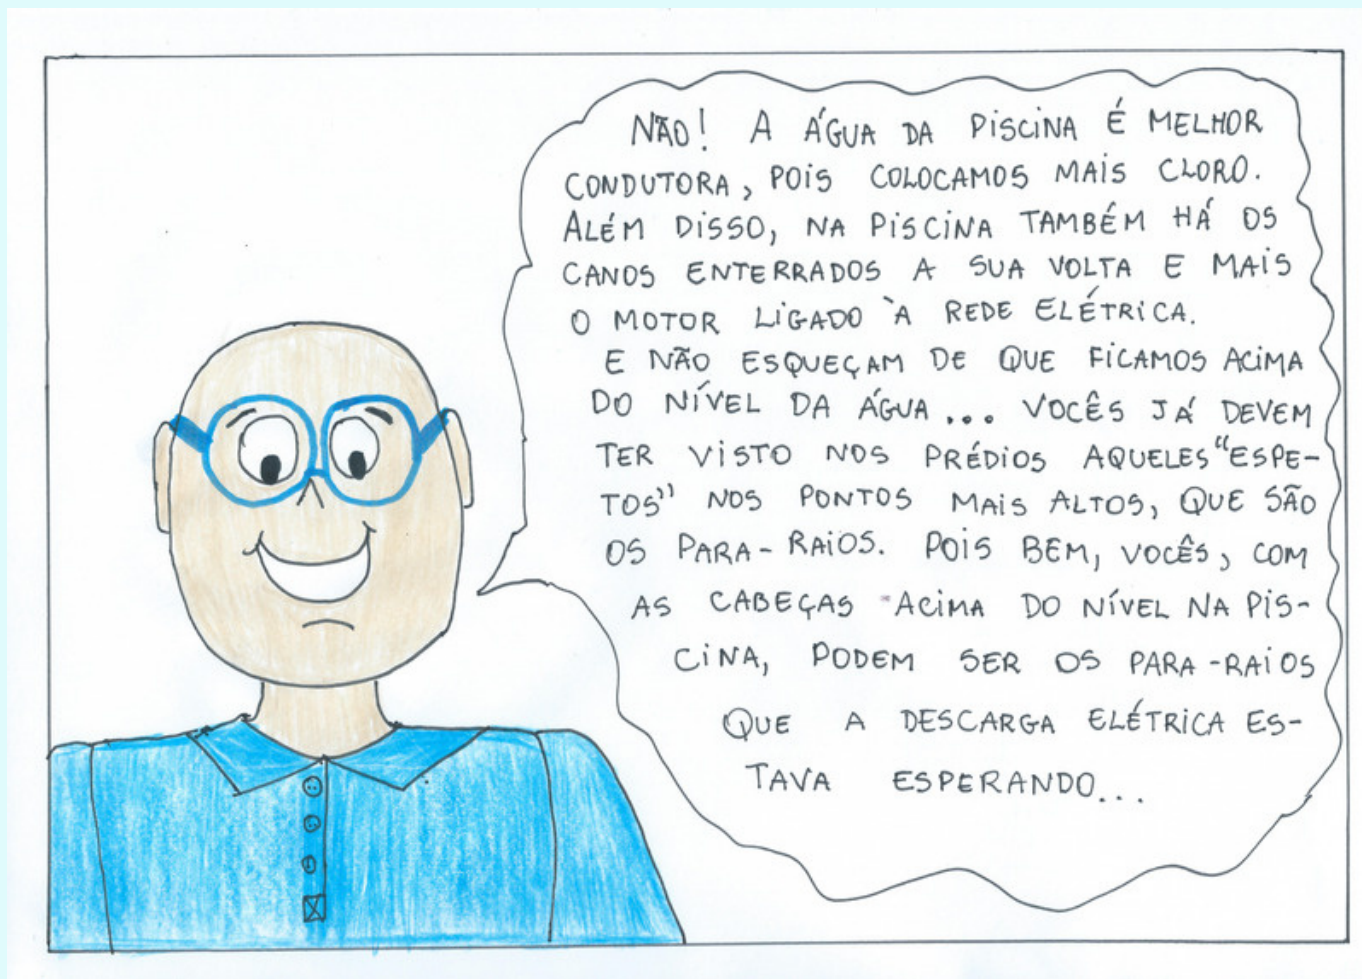 NÃO! A ÁGUA DA PISCINA É MELHOR
CONDUTORA, POIS COLOCAMOS MAIS CLORO.
ALÉM DISSO, NA PISCINA TAMBÉM HÁ OS
CANOS ENTERRADOS A SUA VOLTA E MAIS
O MOTOR LIGADO À REDE ELÉTRICA.
E NÃO ESQUEÇAM DE QUE FICAMOS ACIMA
DO NÍVEL DA ÁGUA... VOCÊS JÁ DEVEM
TER VISTO NOS PRÉDIOS AQUELES "ESPE-
TOS" NOS PONTOS MAIS ALTOS, QUE SÃO
OS PARA-RAIOS. POIS BEM, VOCÊS, COM
AS CABEÇAS ACIMA DO NÍVEL NA PIS-
CINA, PODEM SER OS PARA-RAIOS
QUE A DESCARGA ELÉTRICA ES-
TAVA ESPERANDO...